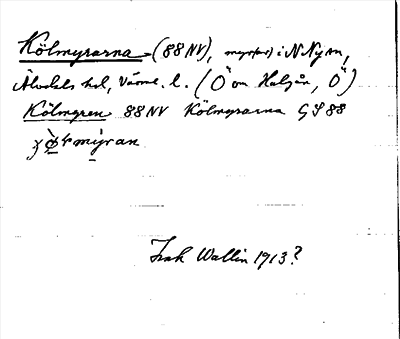 Kölmyrarna (88 NV), myr(ar) i N Ny sn,
Älvdals hd, Värml. l. (Ö om Halgån, Ö)
Kölmyren 88 NV Kölmyrarna GS 88
myran
Isak Wallin 1913?